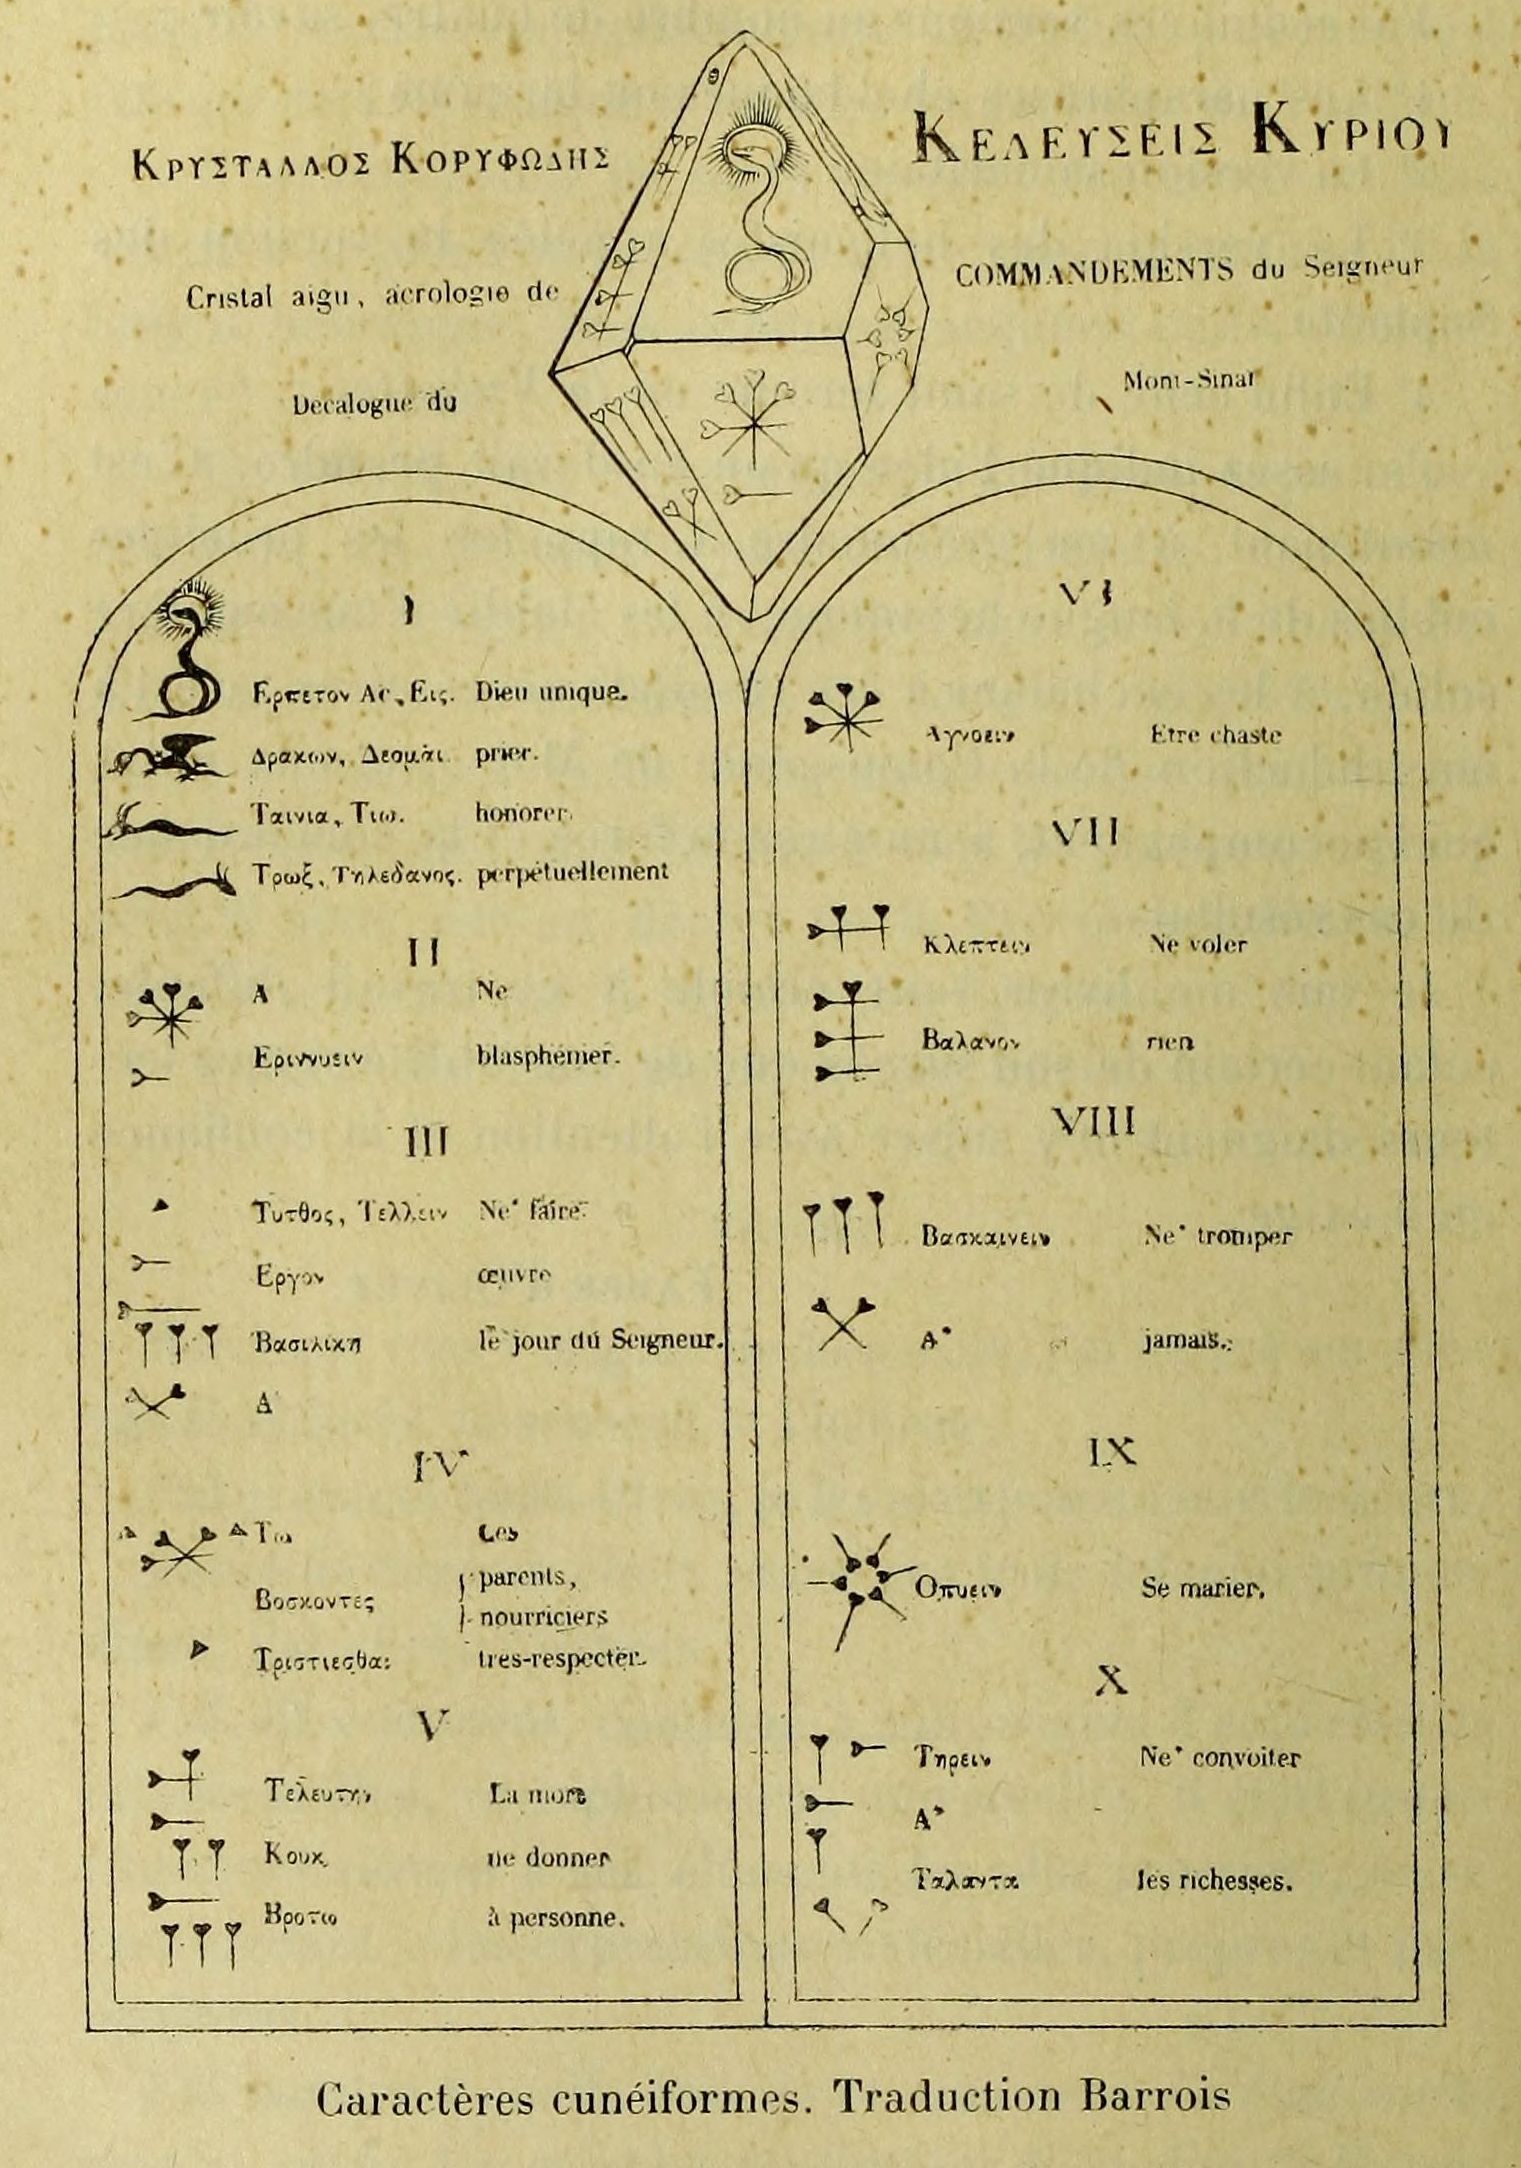 ΚΡΥΣΤΑΛΛΟΣ ΚΟΡΥΦΩΔΗΣ
ΚΕΛΕΥΣΕΙΣ ΚΥΡΙΟΥ
Cristal aigu, acrologie de
COMMANDEMENTS du Seigneur
Décalogue du
Mont-Sinaï
I
Ερπετον Ας, Εις. Dieu unique.
Δρακων, Δεομαι prier.
Ταινια, Τιω. honorer.
Τρωξ, Τηλεδανος. perpétuellement
II
Α Ne
Εριννυειν blasphémer.
III
Τυτθος, Τελλειν Ne* faire
Εργον œuvre
Βασιλικη le jour du Seigneur.
Α
IV
Τω Les
Βοσκοντες parents,
nourriciers
Τριστιεσθαι très-respecter.
V
Τελευτην La mort
Κουκ ne donner
Βροτω à personne.
VI
Αγνοειν Etre chaste
VII
Κλεπτειν Ne voler
Βαλανον rien
VIII
Βασκαινειν Ne* tromper
Α* jamais.
IX
Οπυειν Se marier.
X
Τηρειν Ne* convoiter
Α*
Ταλαντα les richesses.
Caractères cunéiformes. Traduction Barrois